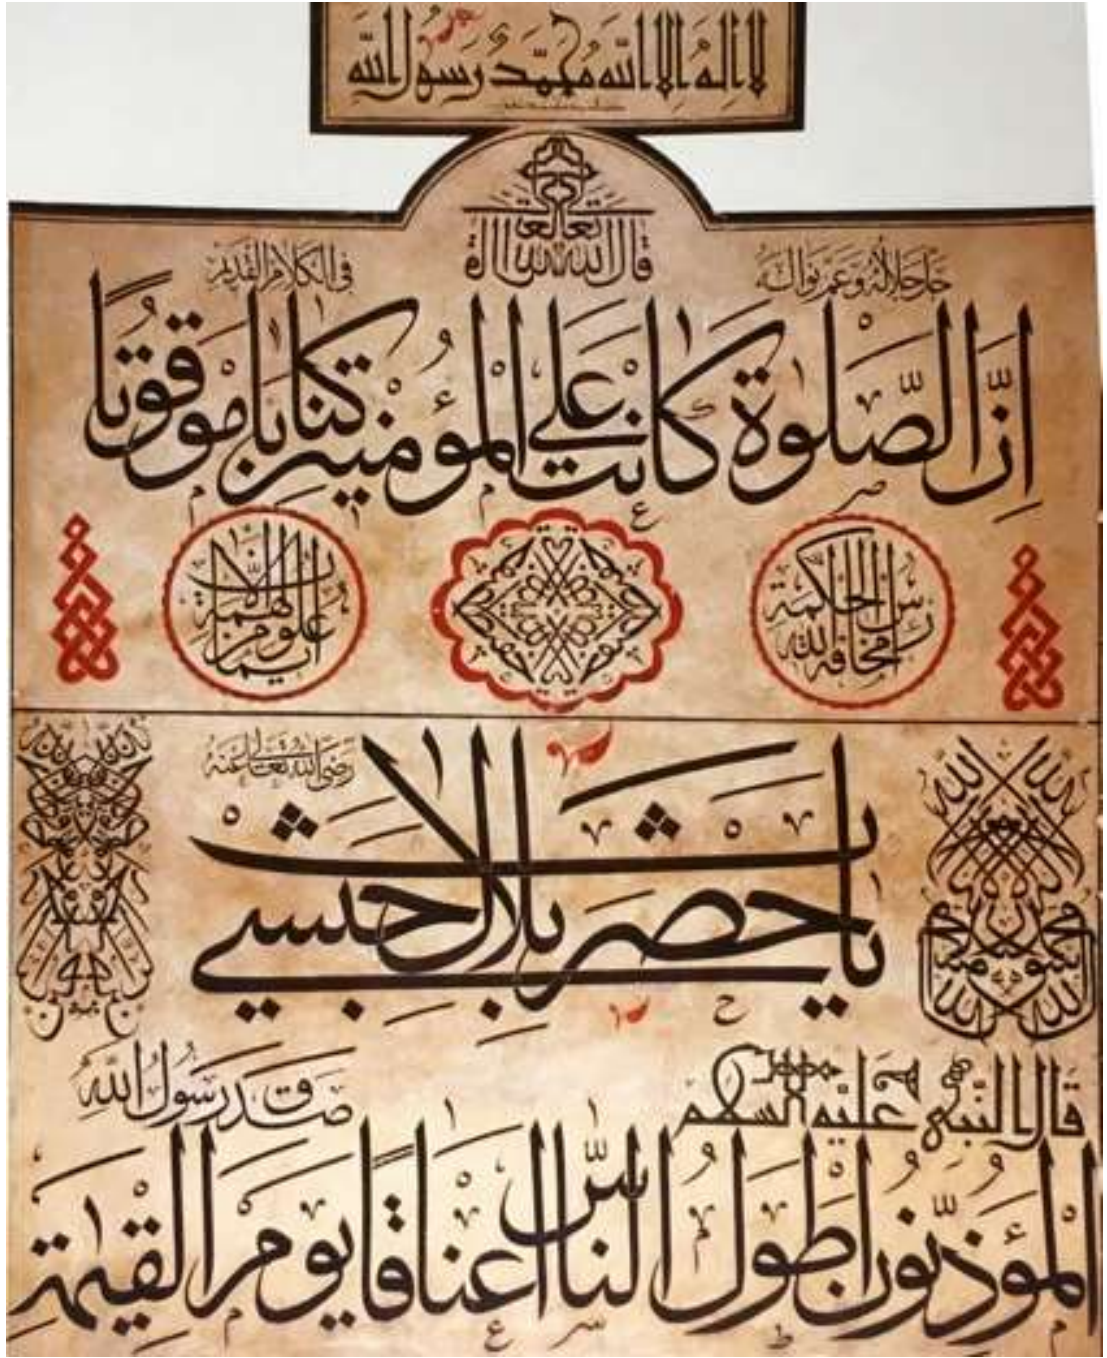 لا اله الا الله محمد رسول الله
قال الله تعالى
جل جلاله وعم نواله
في الكلام القديم
اِنَّ الصَّلٰوةَ كَانَتْ عَلَى الْمُؤْمِنِينَ كِتَابًا مَوْقُوتًا
رأس الحكمة مخافة الله
علو الهمة من الإيمان
رضى الله تعالى عنه
يا حضرت بلال حبشي
قال النبي عليه السلام
صدق رسول الله
اَلْمُؤَذِّنُونَ اَطْوَلُ النَّاسِ اَعْنَاقًا يَوْمَ الْقِيٰمَةِ